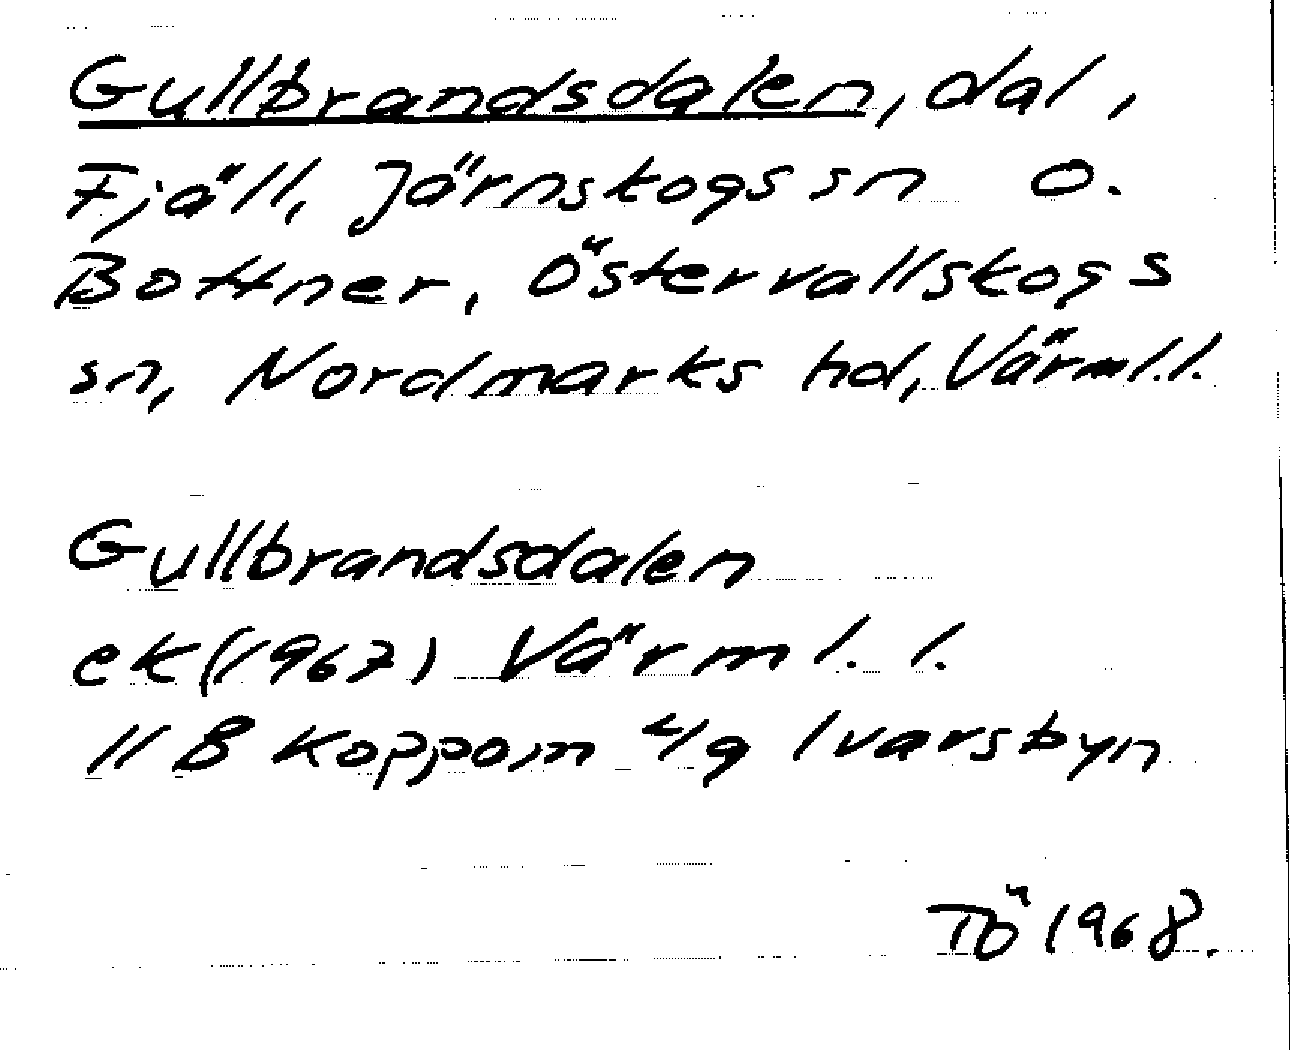 Gullbrandsdalen, dal,
Fjäll, Järnskogs sn o.
Bottner, Östervallskogs
sn, Nordmarks hd, Värml.l.
Gullbrandsdalen
ek (1967) Värml. l.
11 B Koppom 4/g Ivarsbyn
TÖ 1968.